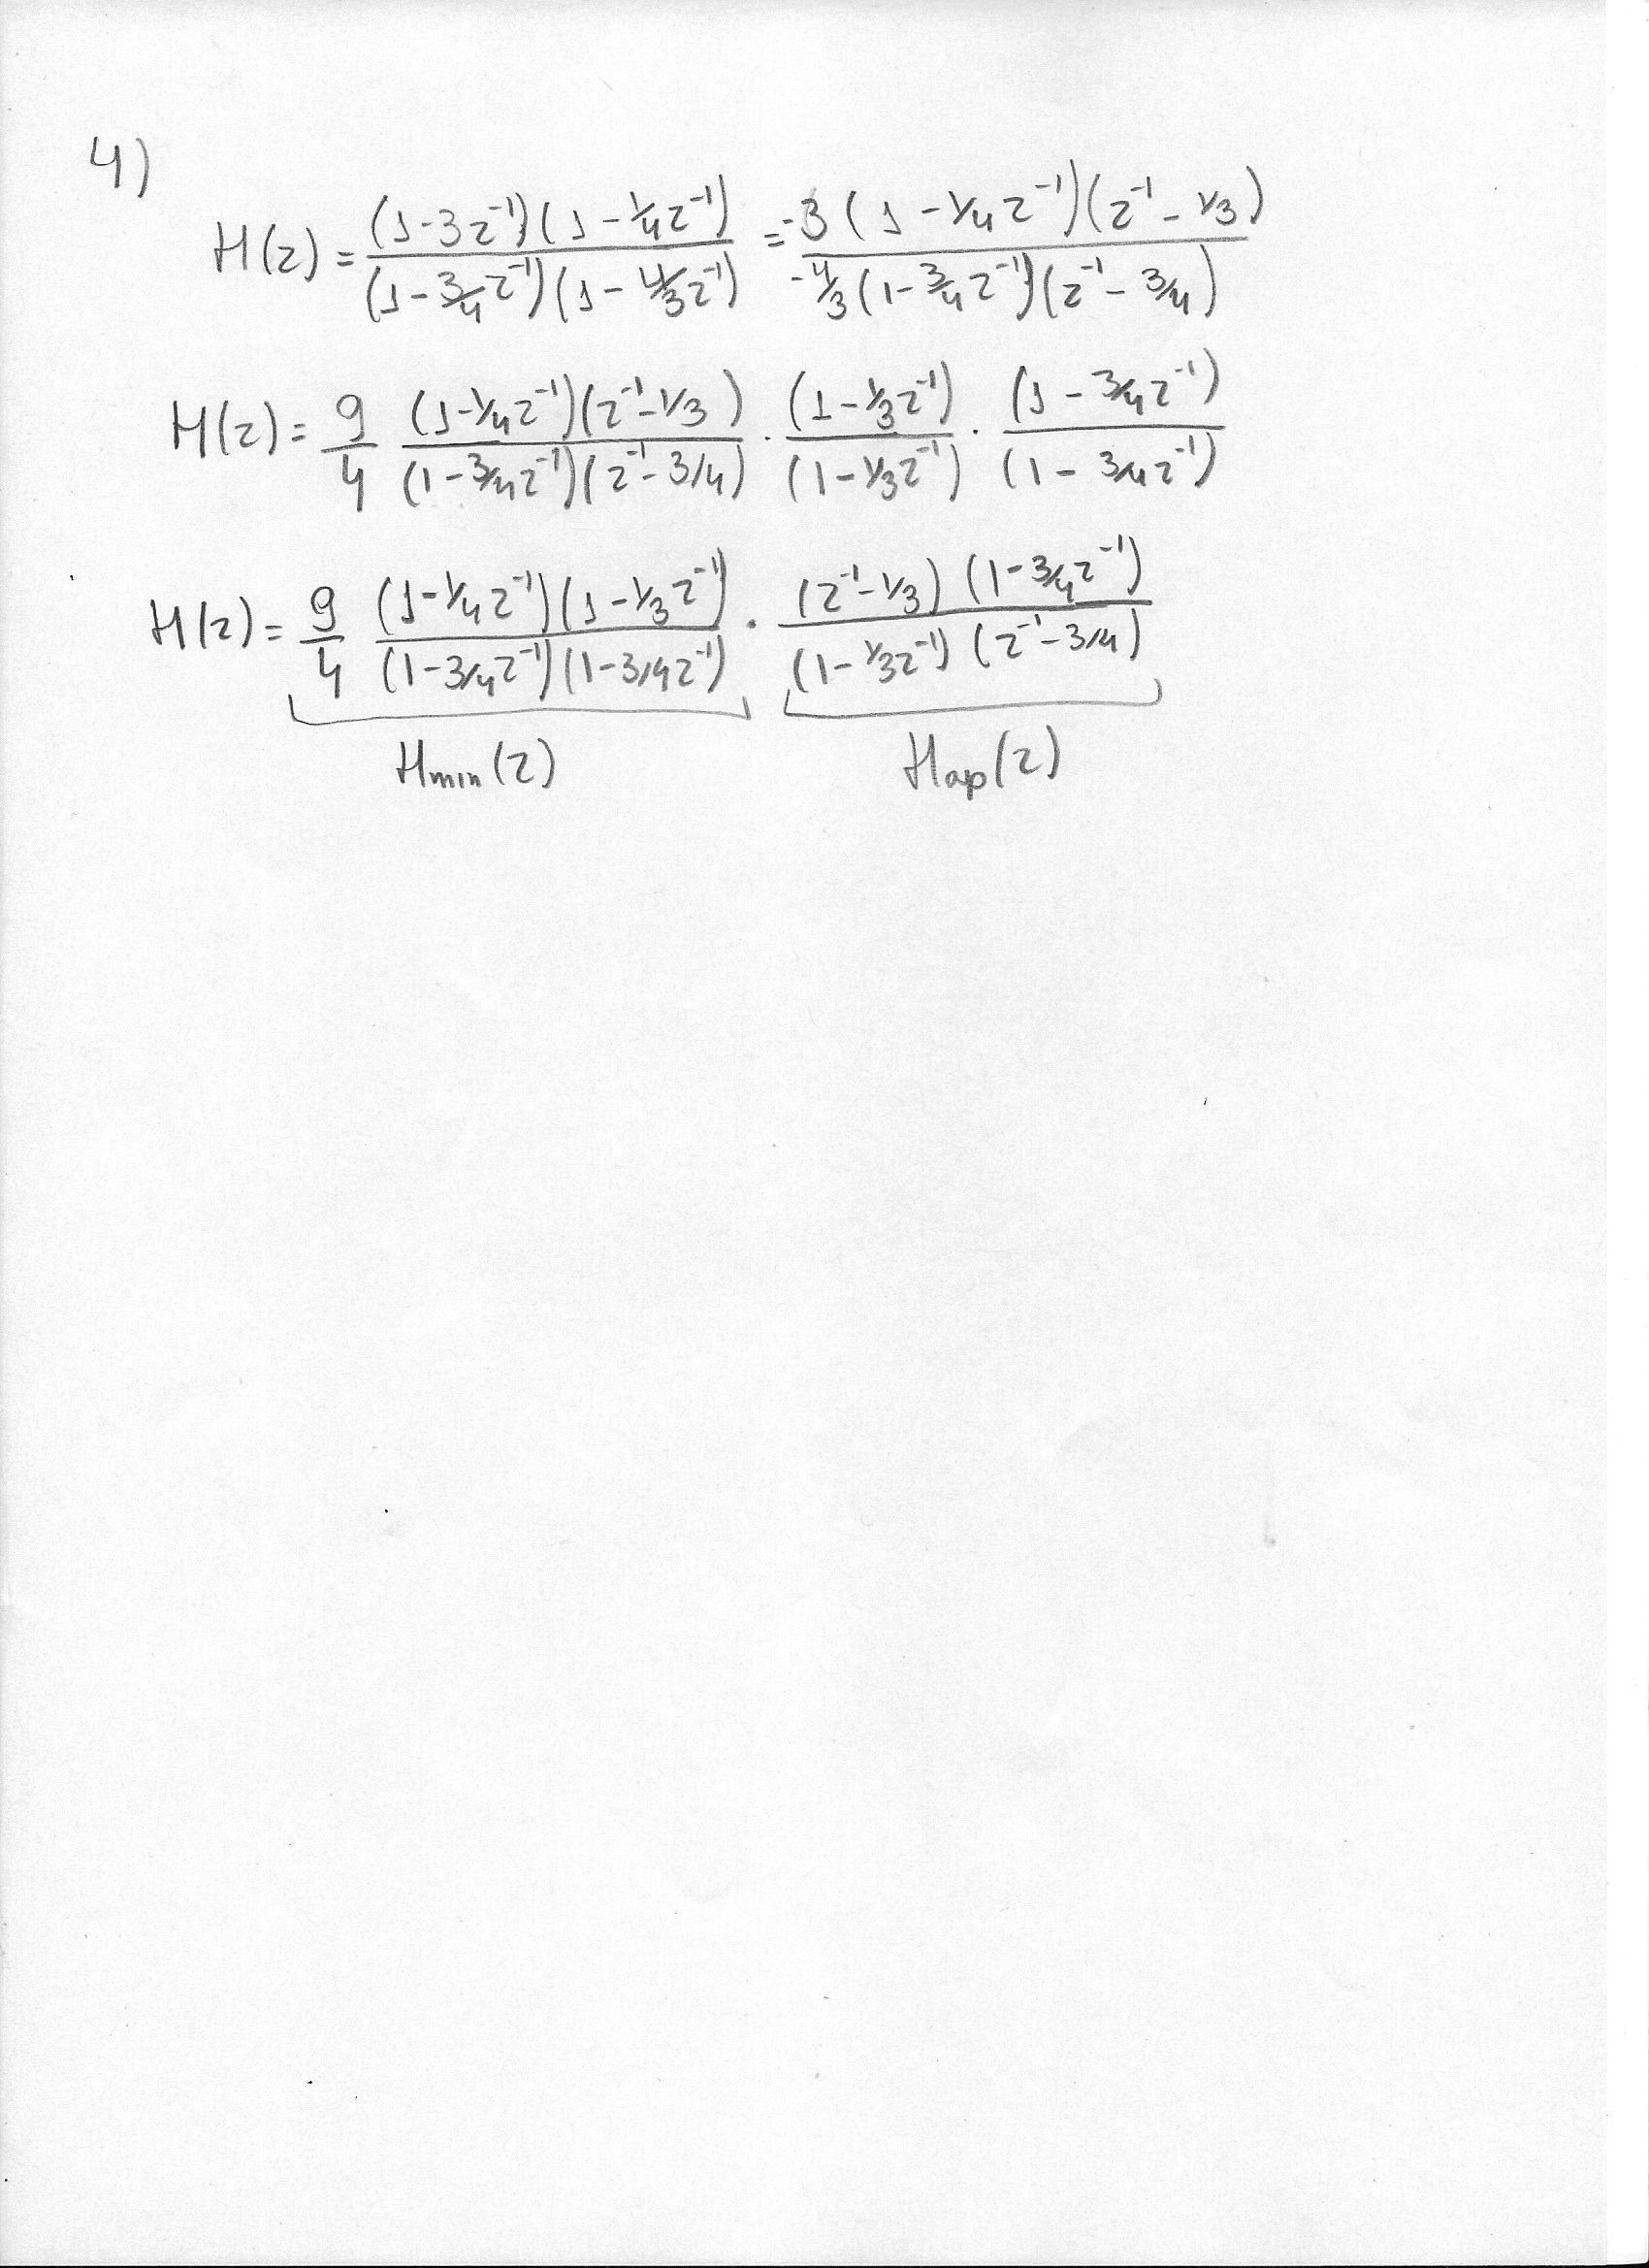 4)
H(z) = (1-3z⁻¹)(1-1/4z⁻¹) / (1-3/4z⁻¹)(1-4/3z⁻¹) = -3(1-1/4z⁻¹)(z⁻¹-1/3) / -4/3(1-3/4z⁻¹)(z⁻¹-3/4)
H(z) = 9/4 (1-1/4z⁻¹)(z⁻¹-1/3) / (1-3/4z⁻¹)(z⁻¹-3/4) · (1-1/3z⁻¹) / (1-1/3z⁻¹) · (1-3/4z⁻¹) / (1-3/4z⁻¹)
H(z) = 9/4 (1-1/4z⁻¹)(1-1/3z⁻¹) / (1-3/4z⁻¹)(1-3/4z⁻¹) · (z⁻¹-1/3)(1-3/4z⁻¹) / (1-1/3z⁻¹)(z⁻¹-3/4)
Hmin(z) Hap(z)